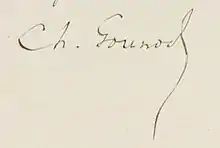 Ch. Gounod